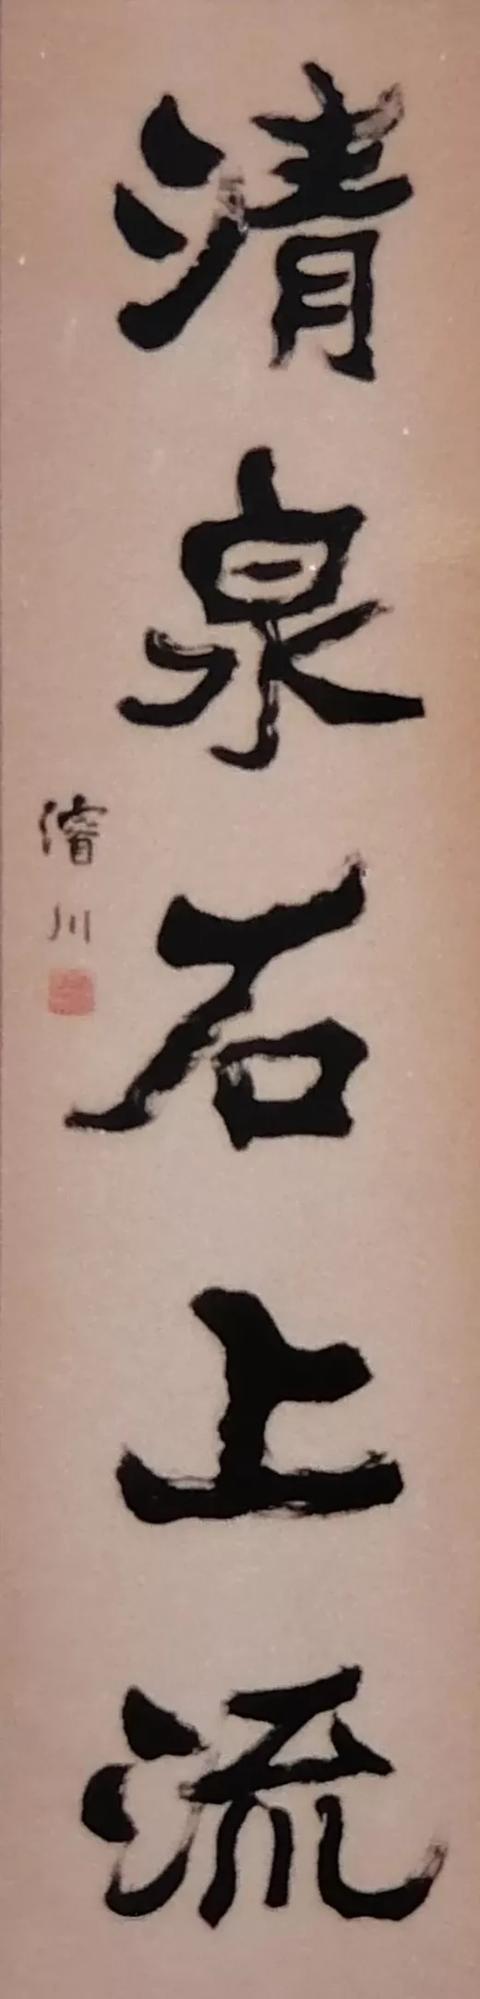 清泉石上流
濬川